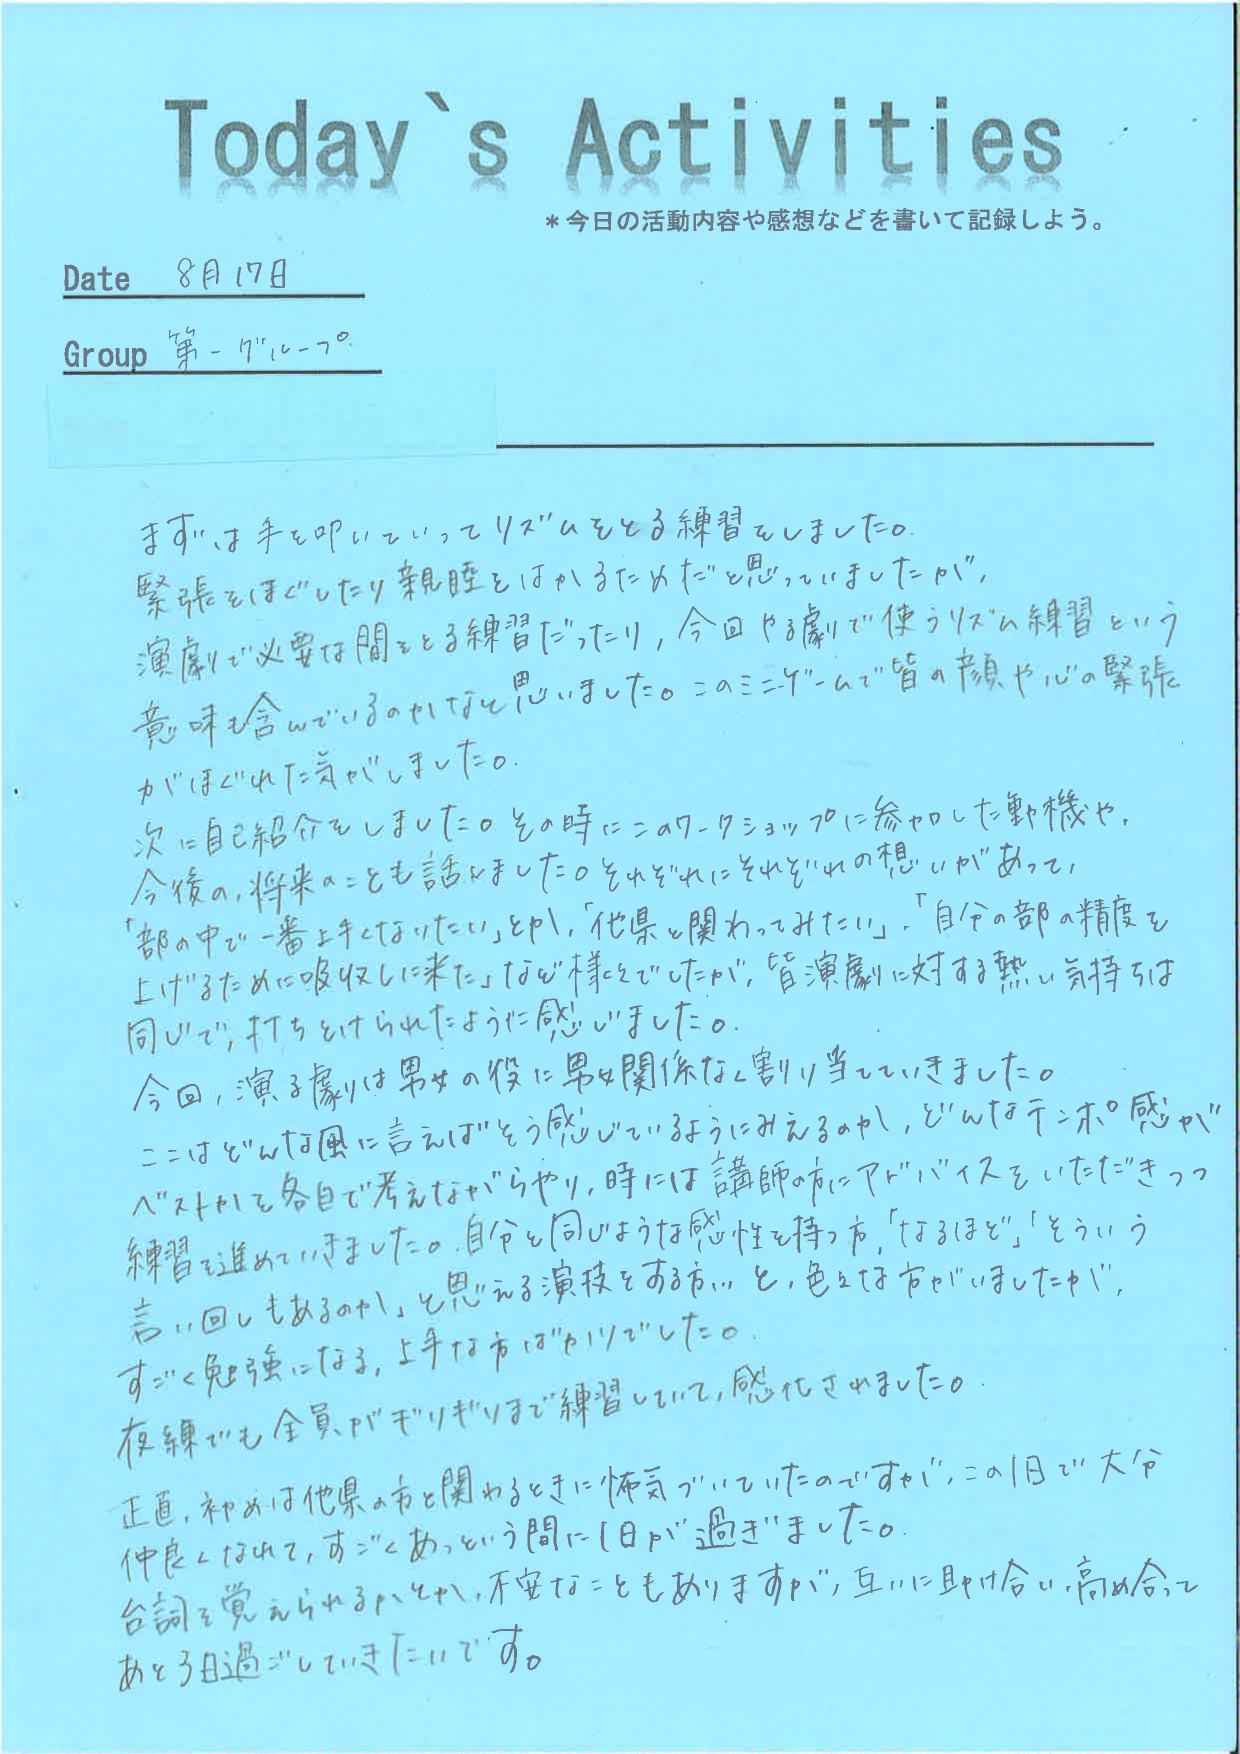 Today`s Activities
＊今日の活動内容や感想などを書いて記録しよう。
Date 8月17日
Group 第一グループ
まずは手を叩いていってリズムをとる練習をしました。
緊張をほぐしたり親睦をはかるためだと思っていましたが、
演劇で必要な間をとる練習だったり、今回やる劇で使うリズム練習という
意味も含んでいるのかなと思いました。このミニゲームで皆の顔や心の緊張
がほぐれた気がしました。
次に自己紹介をしました。その時にこのワークショップに参加した動機や、
今後の、将来のことも話しました。それぞれにそれぞれの想いがあって、
「部の中で一番上手くなりたい」とか、「他県と関わってみたい」、「自分の部の精度を
上げるために吸収しに来た」など様々でしたが、皆演劇に対する熱い気持ちは
同じで、打ちとけられたように感じました。
今回、演る劇は男女の役に男女関係なく割り当てていきました。
ここはどんな風に言えばそう感じているようにみえるのか、どんなテンポ感が
ベストかを各自で考えながらやり、時には講師の方にアドバイスをいただきつつ
練習を進めていきました。自分と同じような感性を持つ方、「なるほど」「そういう
言い回しもあるのか」と思える演技をする方…と、色々な方がいましたが、
すごく勉強になる、上手な方ばかりでした。
夜練でも全員がギリギリまで練習していて、感化されました。
正直、初めは他県の方と関わるときに怖気づいていたのですが、この1日で大分
仲良くなれて、すごくあっという間に1日が過ぎました。
台詞を覚えられるかとか、不安なこともありますが、互いに助け合い、高め合って
あと3日過ごしていきたいです。